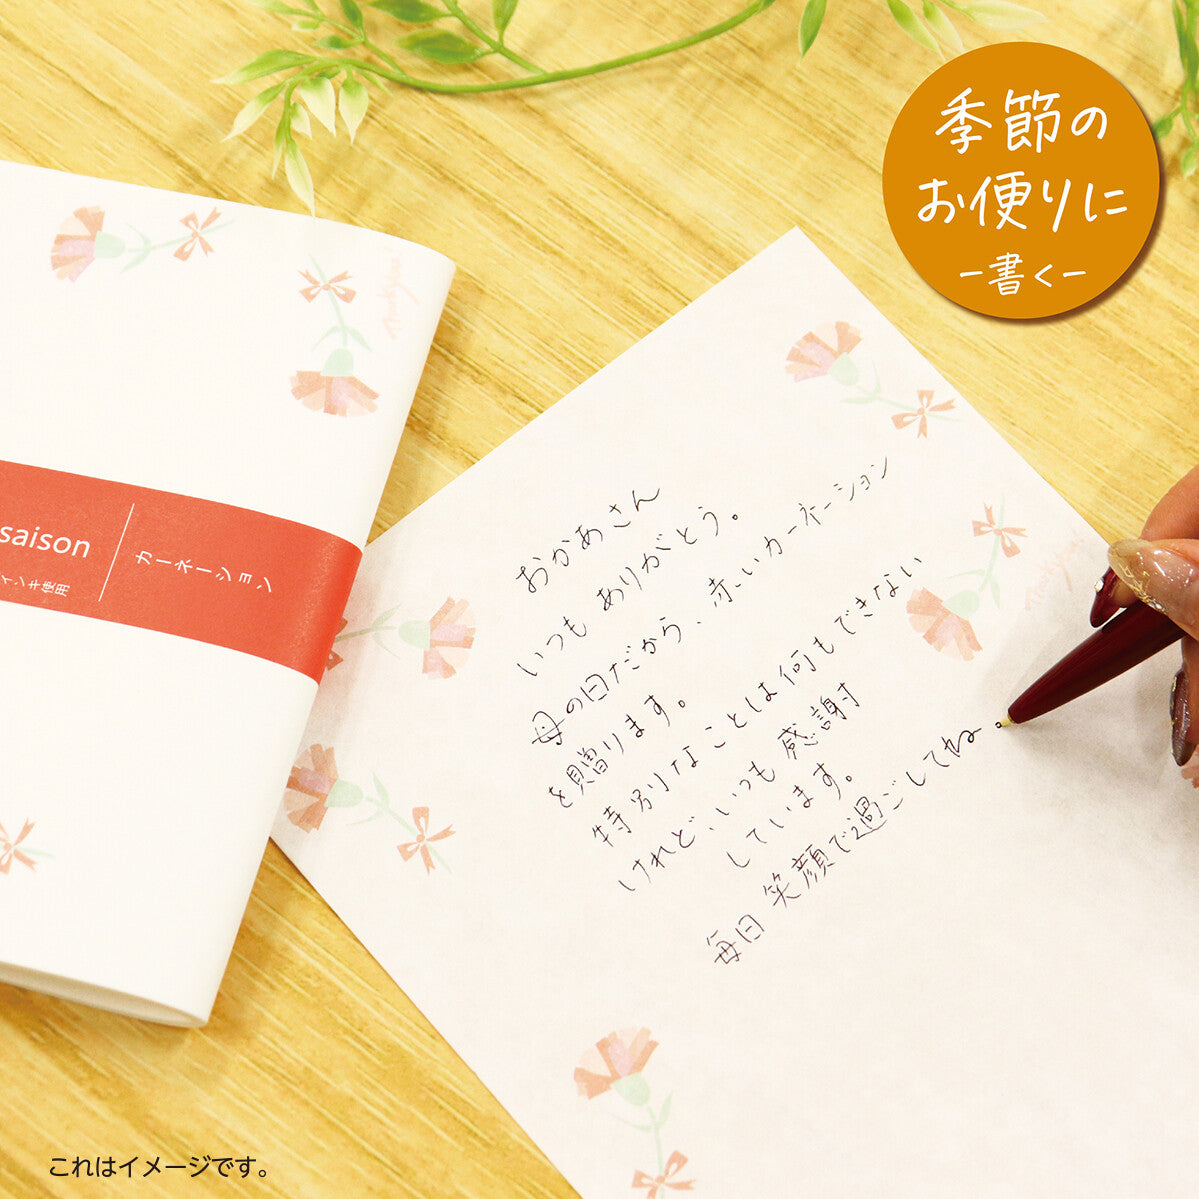 季節の
お便りに
ー書くー
saison
カーネーション
インキ使用
おかあさん
いつも ありがとう。
母の日だから、赤いカーネーション
を贈ります。
特別なことは何もできない
けれど、いつも感謝
しています。
毎日 笑顔で過ごしてね。
これはイメージです。